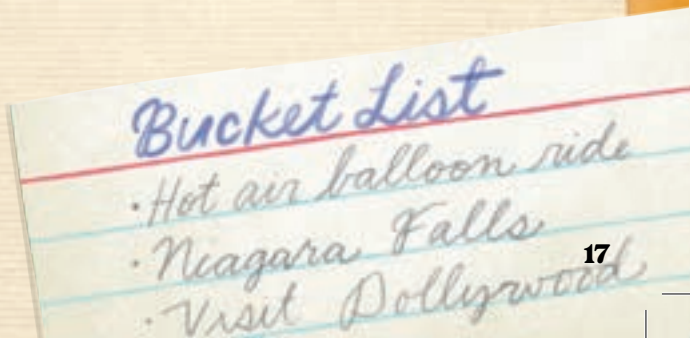 Bucket List
· Hot air balloon ride
· Niagara Falls
· Visit Dollywood
17